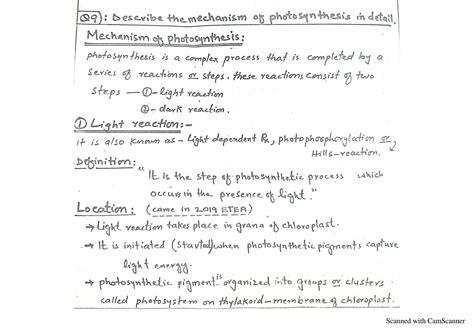 Q9): Describe the mechanism of photosynthesis in detail.
Mechanism of photosynthesis:
photosynthesis is a complex process that is completed by a
series of reactions or steps. these reactions consist of two
steps — ①- light reaction
②- dark reaction.
① Light reaction:-
It is also known as - Light dependent Rx, photophosphorylation or
Hills-reaction.
Definition:
"It is the step of photosynthetic process which
occurs in the presence of light."
Location: (came in 2019 ETEA)
→ Light reaction takes place in grana of chloroplast.
→ It is initiated (started) when photosynthetic pigments capture
light energy.
→ photosynthetic pigments organized into groups or clusters
called photosystem on thylakoid-membrane of chloroplast.
Scanned with CamScanner